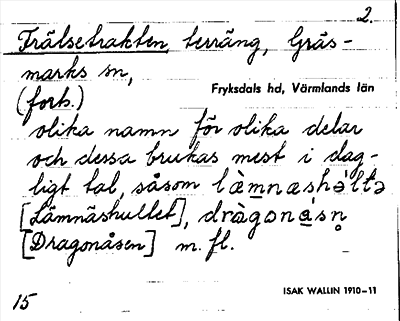 2.
Frälsetrakten, terräng, Gräs-
marks sn,
(forts.)
Fryksdals hd, Värmlands län
olika namn för olika delar
och dessa brukas mest i dag-
ligt tal, såsom lὰmnæshə́ltə
[Lämnäshultet], dràgonásn̥
[Dragonåsen] m. fl.
15
ISAK WALLIN 1910–11